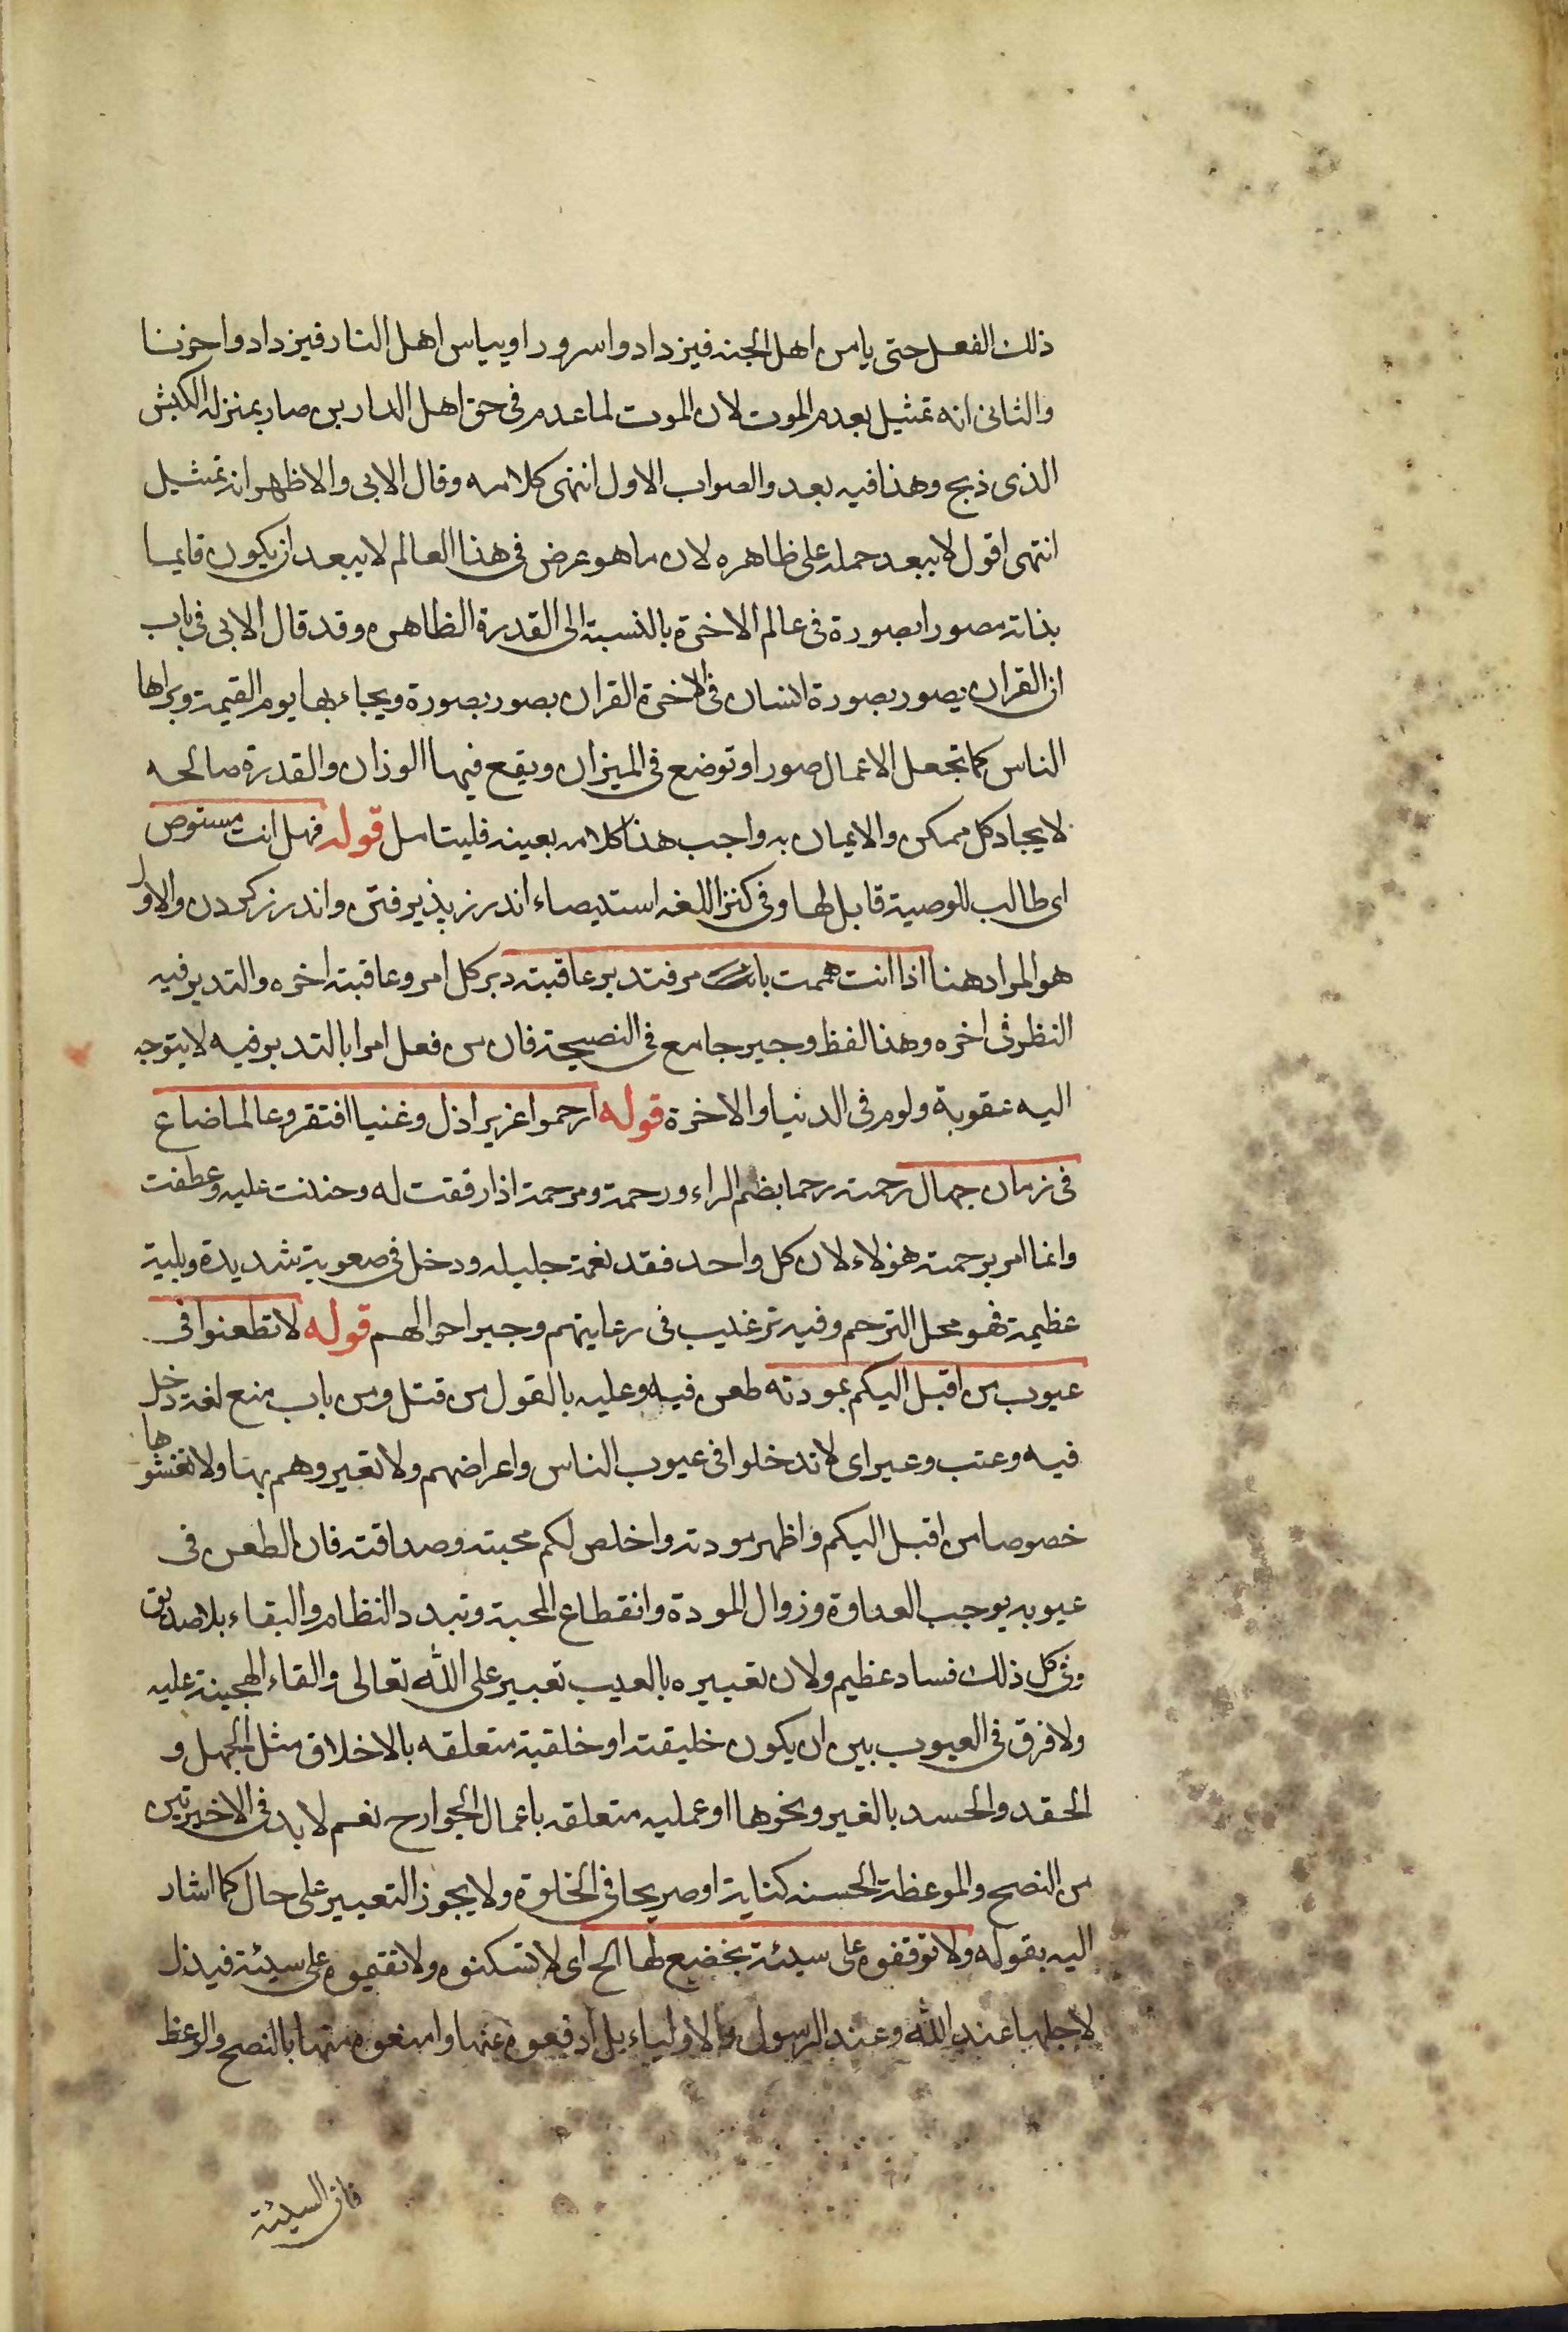 ذلك الفعل حتى يامن اهل الجنه فيزدادوا سرورا وييأس اهل النار فيزدادوا حزنا
والثانى انه تمثيل بعدم الموت لان الموت لما عدم فى حق اهل الدارين صار بمنزله الكبش
الذى ذبح وهذا فيه بعد والصواب الاول انتهى كلامه وقال الابى والاظهر انه تمثيل
انتهى اقول لا يبعد حمله على ظاهره لان ما هو عرض فى هذا العالم لا يبعد ان يكون قايما
بذاته مصورا بصورة فى عالم الاخرة بالنسبة الى القدرة الظاهره وقد قال الابى فى باب
ان القران يصور بصورة انسان فى الاخرة القران بصور بصورة ويجاء بها يوم القيمة ويراها
الناس كما تجعل الاعمال صورا وتوضع فى الميزان ويقع فيها الوزان والقدرة صالحه
لايجاد كل ممكن والايمان به واجب هذا كلامه بعينه فليتامل قوله فهل انت مستوص
اى طالب للوصية قابل لها وفى كنز اللغه استيصاء اندرز پذيرفتن واندرز كردن والاول
هو المراد هنا اذا انت هممت بامر فتدبر عاقبته دبر كل امر وعاقبته اخره والتدبر فيه
النظر فى اخره وهذا لفظ وجيز جامع فى النصيحة فان من فعل امرا بالتدبر فيه لا يتوجه
اليه عقوبة ولوم فى الدنيا والاخرة قوله ارحموا عزيزا ذل وغنيا افتقر وعالما ضاع
فى زمان جهال رحمته رحما بضم الراء ورحمة ومرحمة اذا رققت له وحننت عليه وعطفت
وانما امر برحمة هؤلاء لان كل واحد فقد نعمة جليله ودخل فى صعوبة شديدة وبلية
عظيمة فهو محل الترحم وفيه ترغيب فى رعايتهم وجبر احوالهم قوله لا تطعنوا فى
عيوب من اقبل اليكم بمودته طعن فيه وعليه بالقول من قتل ومن باب منع لغة دخل
فيه وعتب وعير اى لا تدخلوا فى عيوب الناس واعراضهم ولا تعيروهم بها ولا تفشوها
خصوصا من اقبل اليكم واظهر مودته واخلص لكم محبته وصداقته فان الطعن فى
عيوبه يوجب العداوة وزوال المودة وانقطاع المحبة وتبدد النظام والبقاء بلا صديق
وفى كل ذلك فساد عظيم ولان تعييره بالعيب تعيير على الله تعالى والقاء الهجينة عليه
ولا فرق فى العيوب بين ان يكون خليقته او خلقية متعلقه بالاخلاق مثل الجهل و
الحقد والحسد بالغير ونحوها او عمليه متعلقه باعمال الجوارح نعم لا بد فى الاخيرتين
من النصح والموعظة الحسنه كناية او صريحا فى الخلوة ولا يجوز التعيير على حال كما اشار
اليه بقوله ولا توقفوه على سيئة يخضع لها الخ اى لا تسكنوه ولا تقيموه على سيئة فيذل
لاجلها عند الله وعند الرسول والاولياء بل ادفعوه عنها وامنعوه منها بالنصح والوعظ
فان السيئة